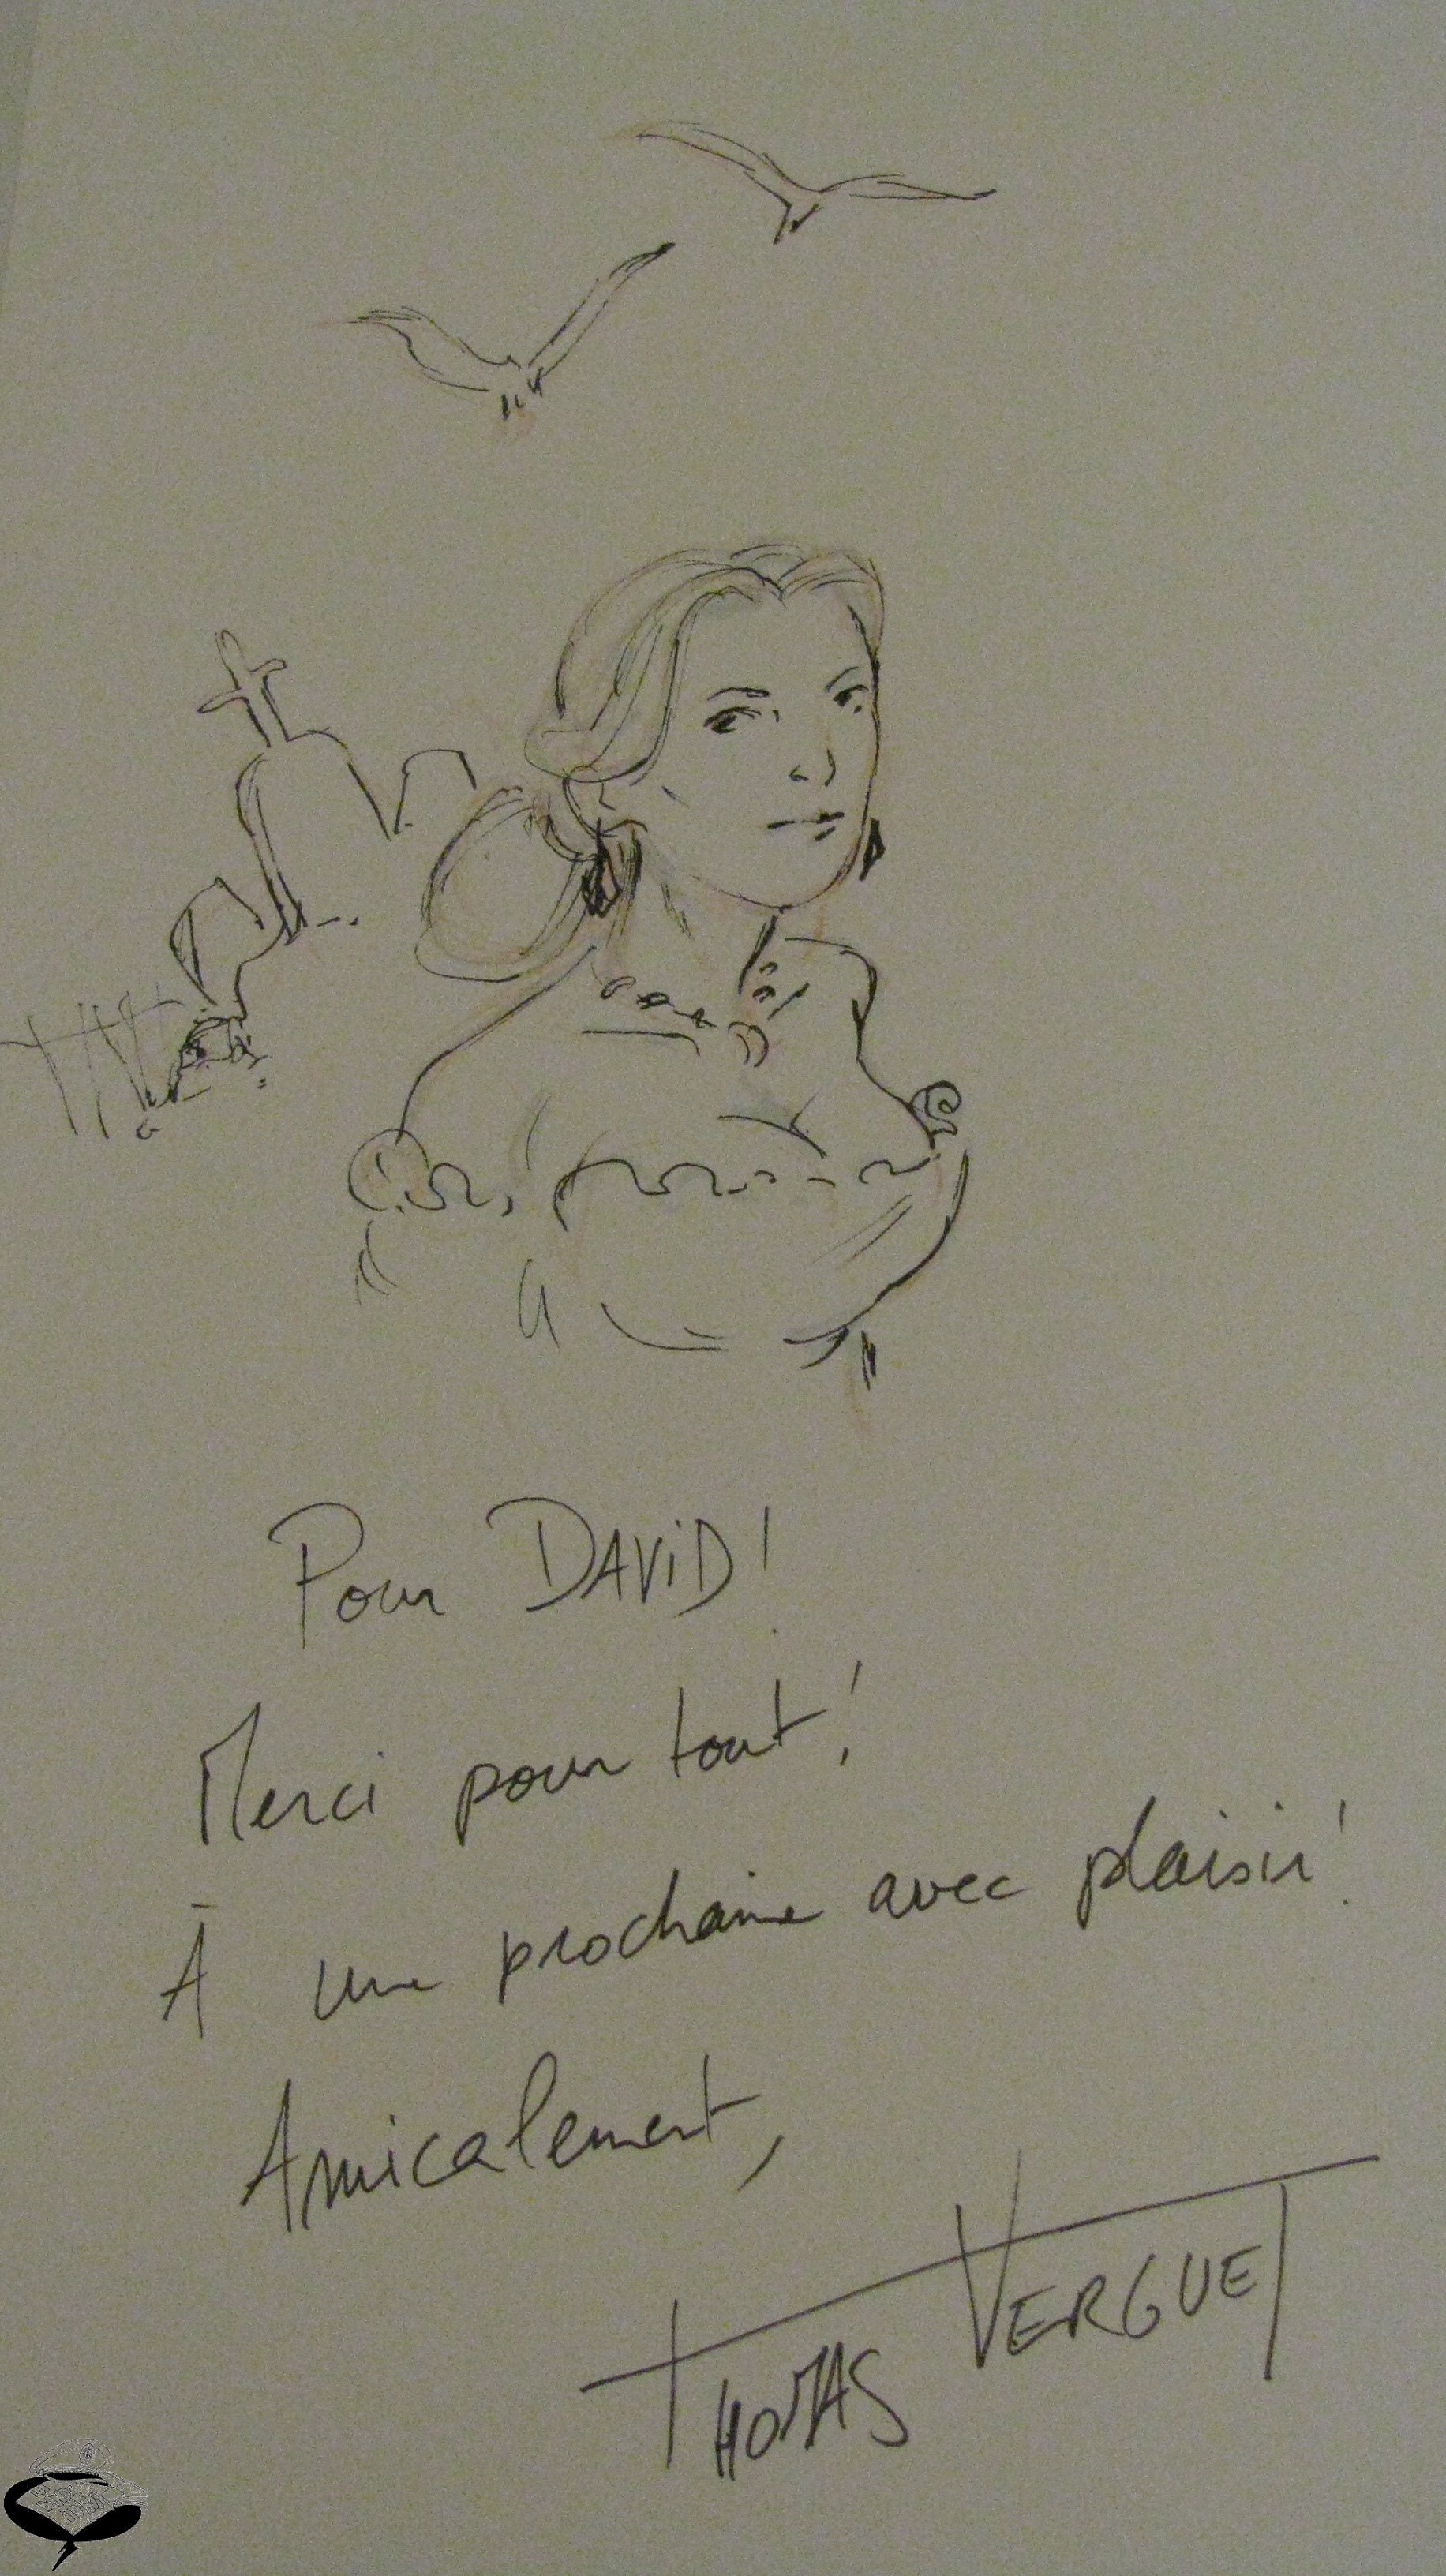 Pour DAViD!
Merci pour tout!
À une prochaine avec plaisir!
Amicalement,
THOMAS VERGUET